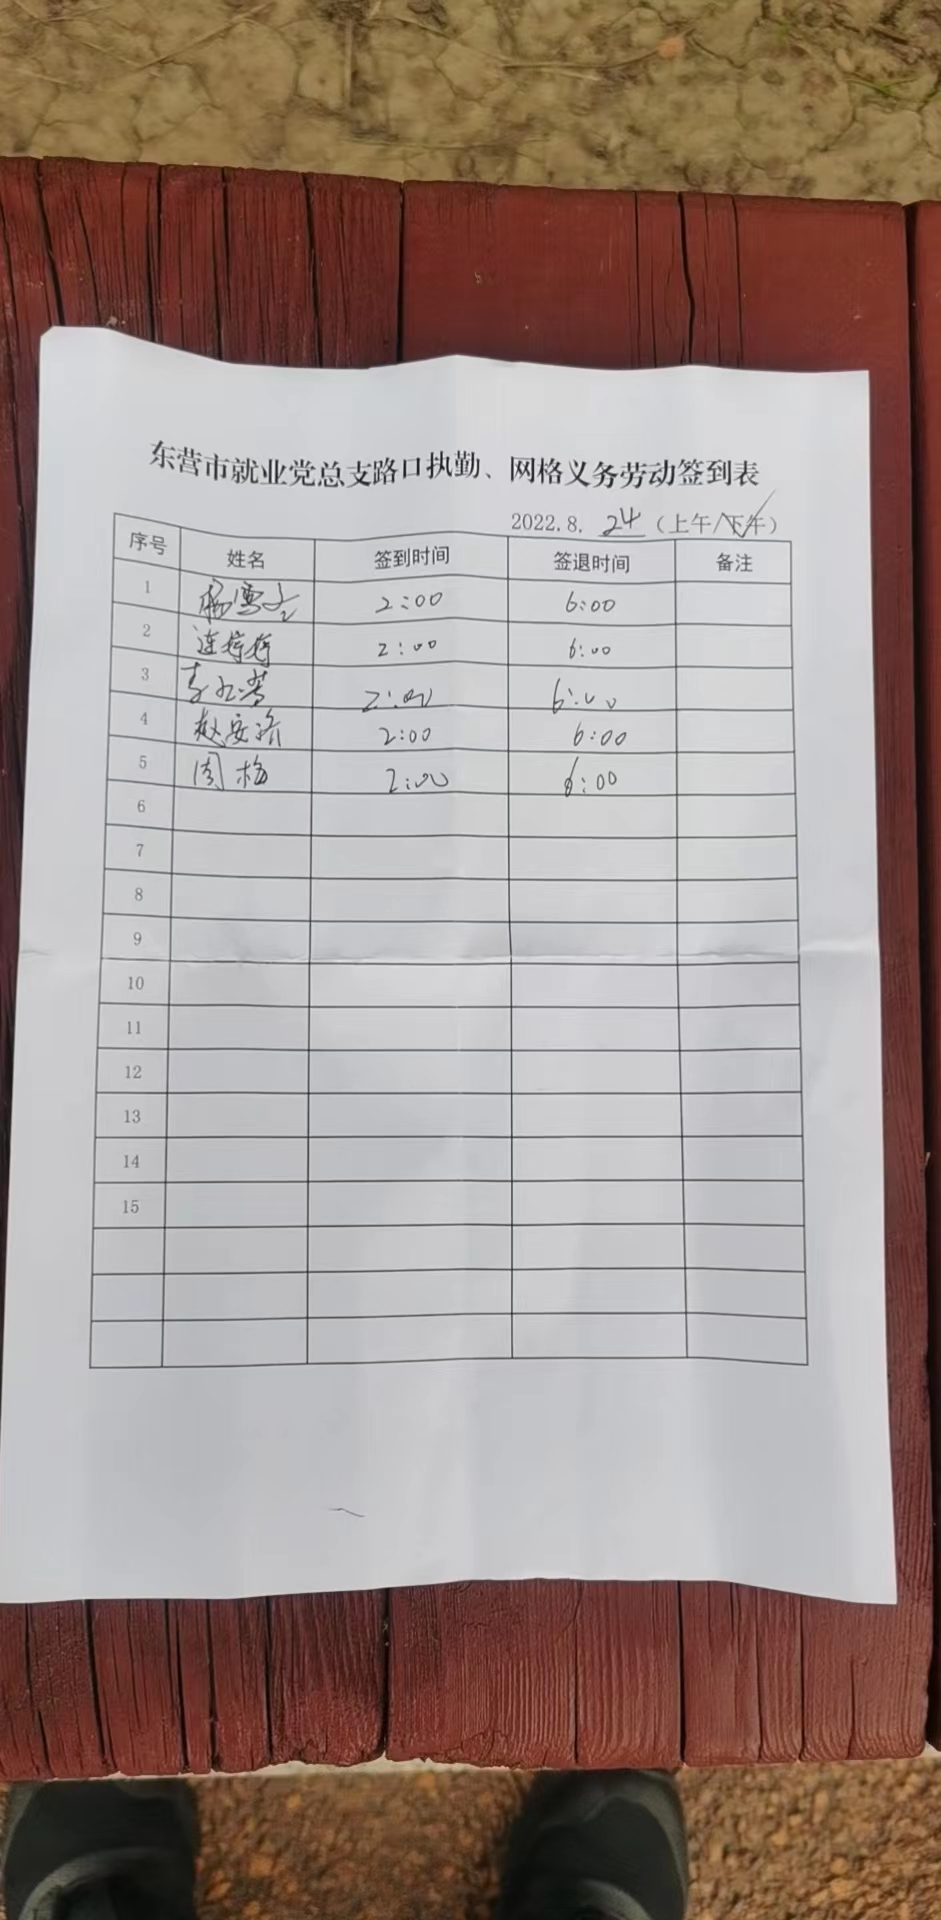 东营市就业党总支路口执勤、网格义务劳动签到表
2022.8. 24 (上午/下午)
序号 姓名 签到时间 签退时间 备注
1 杨雪 2:00 6:00
2 连婷婷 2:00 6:00
3 李 2:00 6:00
4 赵安 2:00 6:00
5 周梅 2:00 6:00
6
7
8
9
10
11
12
13
14
15